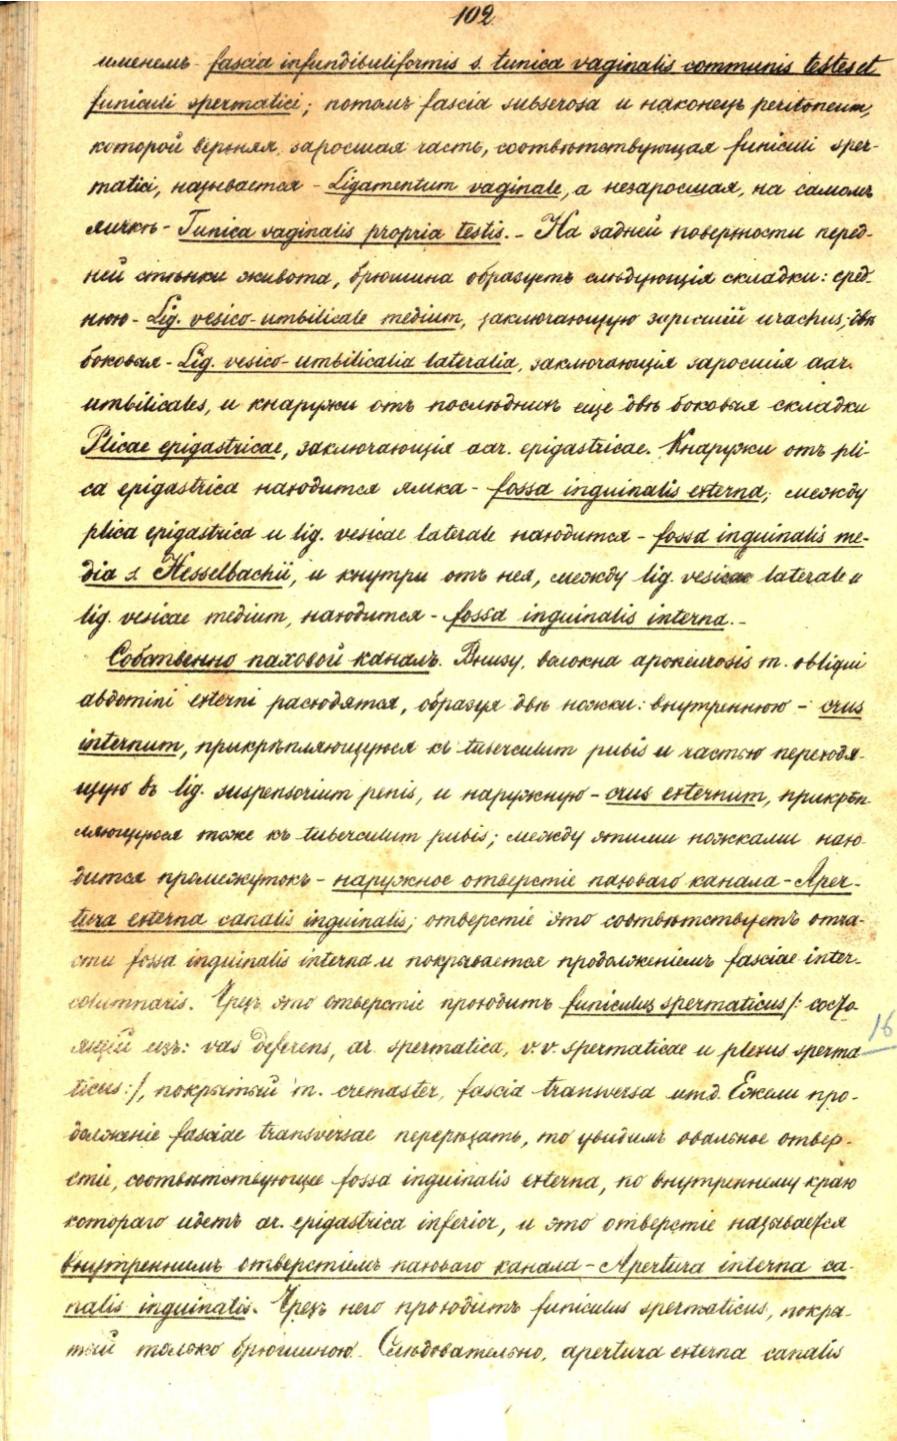 102
именемъ - fascia infundibuliformis s. tunica vaginalis communis testes et
funiculi spermatici; потомъ fascia subserosa и наконецъ peritoneum,
которой верхняя, заросшая часть, соотвѣтствующая funiculi sper-
matici, называется - Ligamentum vaginale, а незаросшая, на самомъ
яичкѣ - Tunica vaginalis propria testis. - На задней поверхности перед-
ней стѣнки живота, брюшина образуетъ слѣдующія складки: сред-
нюю - Lig. vesico-umbilicale medium, заключающую заросшій urachus; двѣ
боковыя - Lig. vesico-umbilicalia lateralia, заключающія заросшія aar.
umbilicales, и кнаружи отъ послѣднихъ еще двѣ боковыя складки
Plicae epigastricae, заключающія aar. epigastricae. Кнаружи отъ pli-
ca epigastrica находится ямка - fossa inguinalis externa; между
plica epigastrica и lig. vesicae laterale находится - fossa inguinalis me-
dia s. Hesselbachii, и кнутри отъ нея, между lig. vesicae laterale и
lig. vesicae medium, находится - fossa inguinalis interna. -
Собственно паховой каналъ. Внизу, волокна aponeurosis m. obliqui
abdomini externi расходятся, образуя двѣ ножки: внутреннюю - crus
internum, прикрѣпляющуюся къ tuberculum pubis и частью переходя-
щую въ lig. suspensorium penis, и наружную - crus externum, прикрѣп-
ляющуюся тоже къ tuberculum pubis; между этими ножками нахо-
дится промежутокъ - наружное отверстіе пахова́го канала - Aper-
tura externa canalis inguinalis; отверстіе это соотвѣтствуетъ отча-
сти fossa inguinalis interna и покрывается продолженіемъ fasciae inter-
columnaris. Чрезъ это отверстіе проходитъ funiculus spermaticus /: состо-
ящій изъ: vas deferens, ar. spermatica, v.v. spermaticae и plexus sperma-
16
ticus :/, покрытый m. cremaster, fascia transversa итд. Ежели про-
долженіе fasciae transversae перерѣзать, то увидимъ овальное отвер-
стіе, соотвѣтствующее fossa inguinalis externa, по внутреннему краю
котораго идетъ ar. epigastrica inferior, и это отверстіе называется
внутреннимъ отверстіемъ паховаго канала - Apertura interna ca-
nalis inguinalis. Чрезъ него проходитъ funiculus spermaticus, покры-
тый только брюшиною. Слѣдовательно, apertura externa canalis